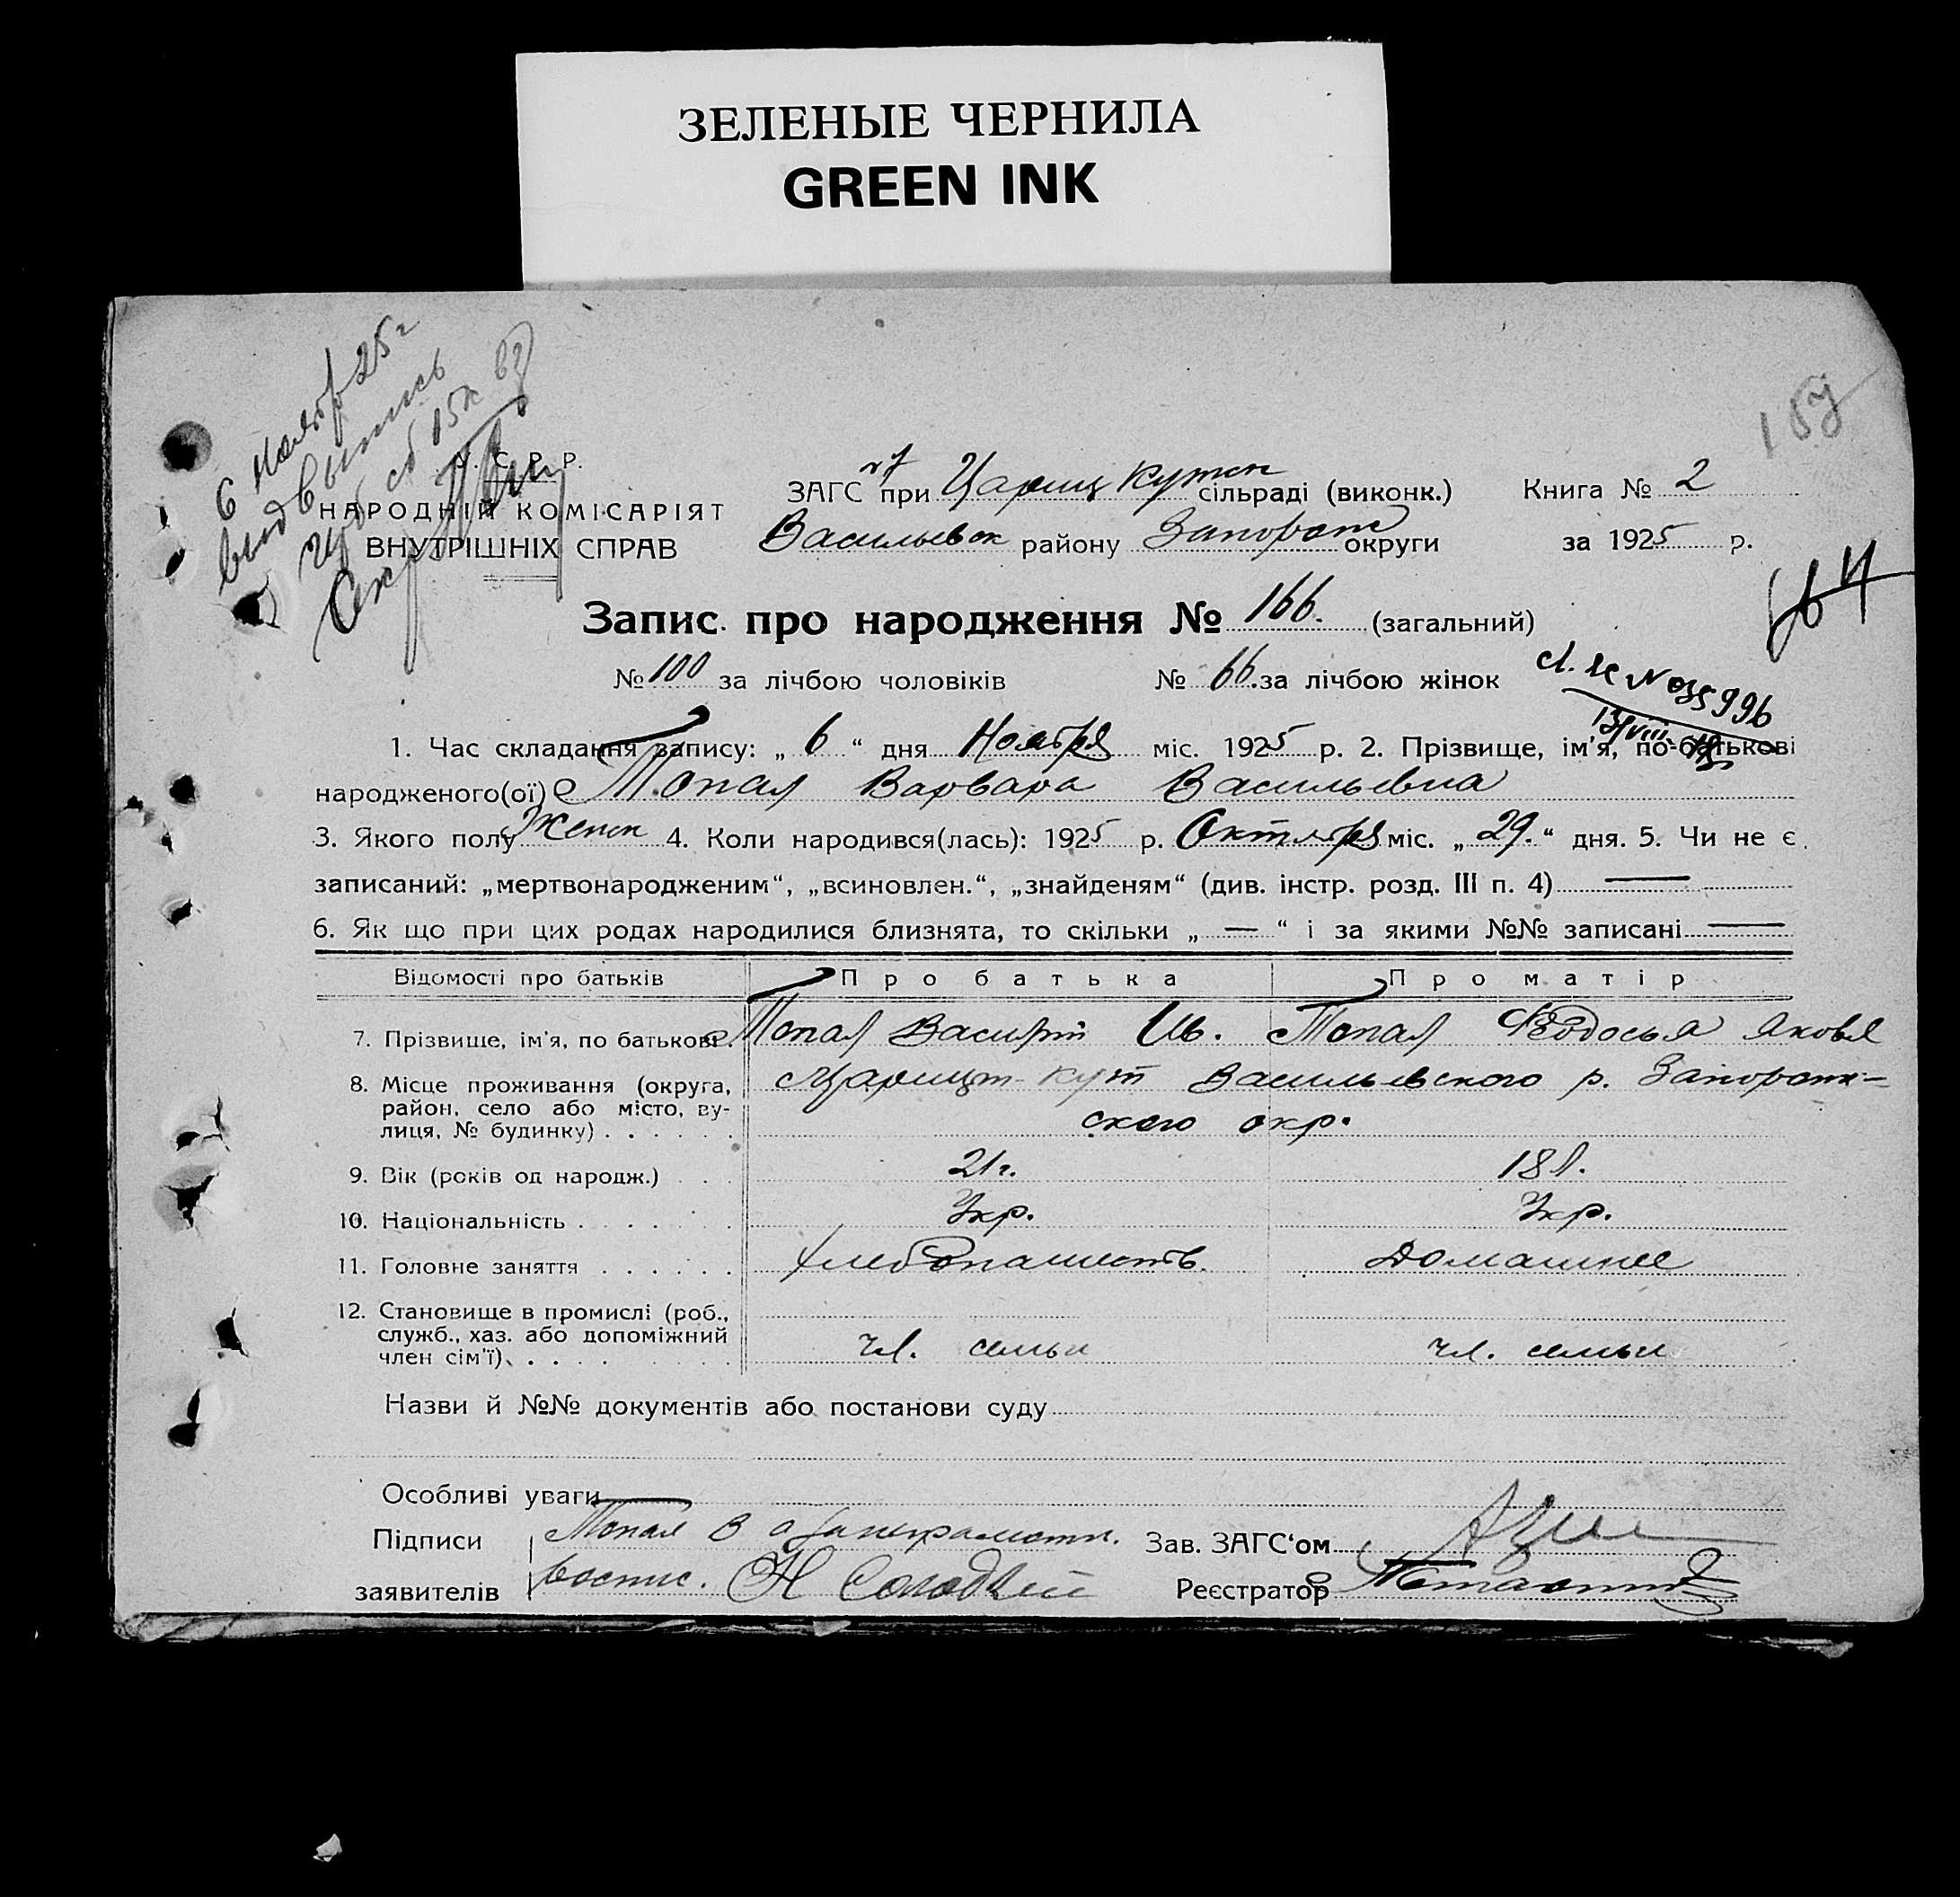 ЗЕЛЕНЫЕ ЧЕРНИЛА
GREEN INK
6 Ноябр 25г
выд выпись
Секр
157
У. С. Р. Р.
НАРОДНІЙ КОМІСАРІЯТ
ВНУТРІШНІХ СПРАВ
ЗАГС при Цариц Кутск сільраді (виконк.) Книга № 2
Васильевск району Запорож округи за 1925 р.
Запис про народження № 166. (загальний)
№ 100 за лічбою чоловіків № 66. за лічбою жінок
1. Час складання запису: „ 6 “ дня Ноября міс. 1925 р. 2. Прізвище, ім'я, по-батькові
народженого(ої) Топал Варвара Васильевна
3. Якого полу Женск 4. Коли народився(лась): 1925 р. Октября міс. „ 29. “ дня. 5. Чи не є
записаний: „мертвонародженим“, „всиновлен.“, „знайденям“ (див. інстр. розд. III п. 4) —
6. Як що при цих родах народилися близнята, то скільки „ — “ і за якими №№ записані —
Відомості про батьків Про батька Про матір
7. Прізвище, ім'я, по батькові. Топал Василий Ив. Топал Феодосья Яковл
8. Місце проживання (округа, Царицин-кут Васильевского р. Запорожж-
район, село або місто, ву-
лиця, № будинку) . . . . . . ского окр.
9. Вік (років од народж.) . . . 21г. 18л.
10. Національність . . . . . . . Укр. Укр.
11. Головне заняття . . . . . . Хлебопашеств. Домашнее
12. Становище в промислі (роб.,
служб., хаз. або допоміжний
член сім'ї). . . . . . . чл. семьи чл. семьи
Назви й №№ документів або постанови суду
Особливі уваги
Підписи Топал В а за неграмотн. Зав. ЗАГС'ом
заявителів Н Солодкий Реєстратор